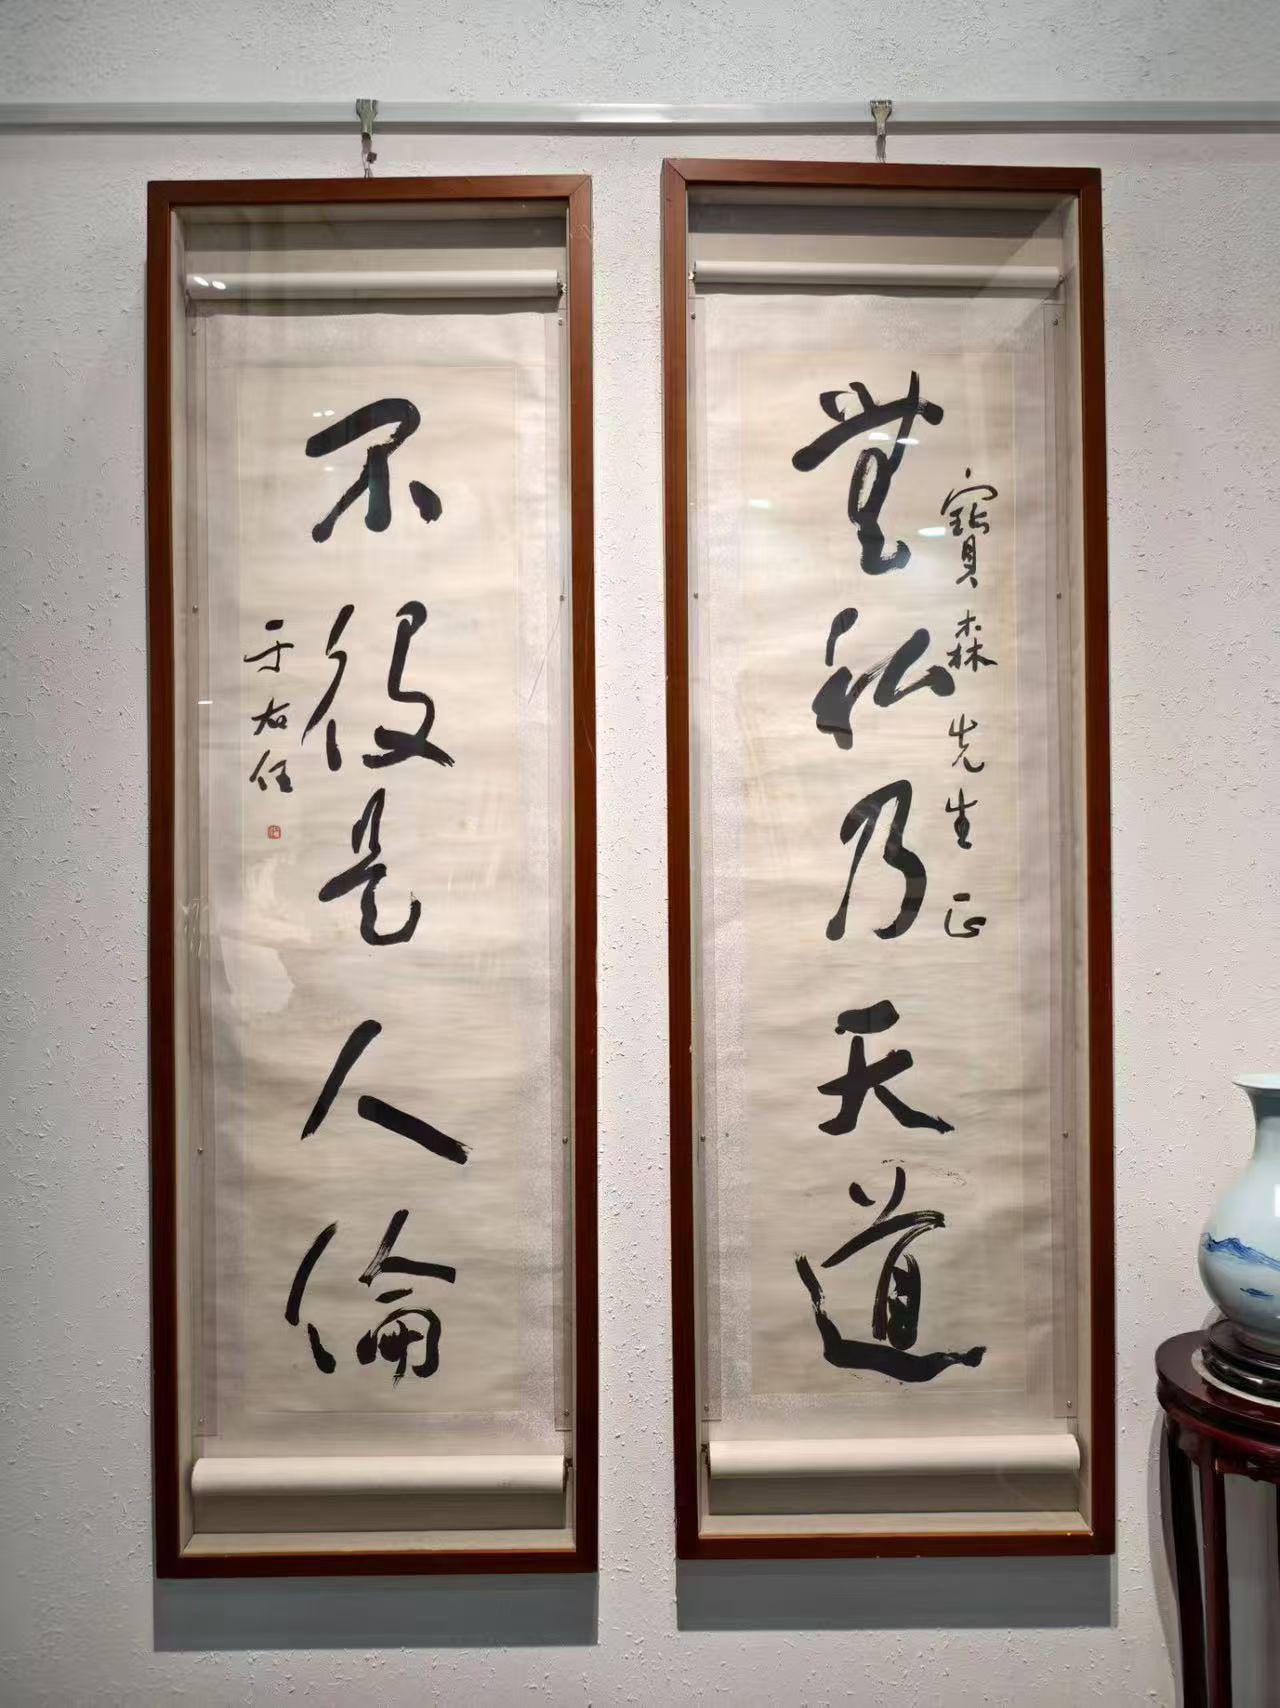 寶森先生正
無私乃天道
不役是人倫
于右任